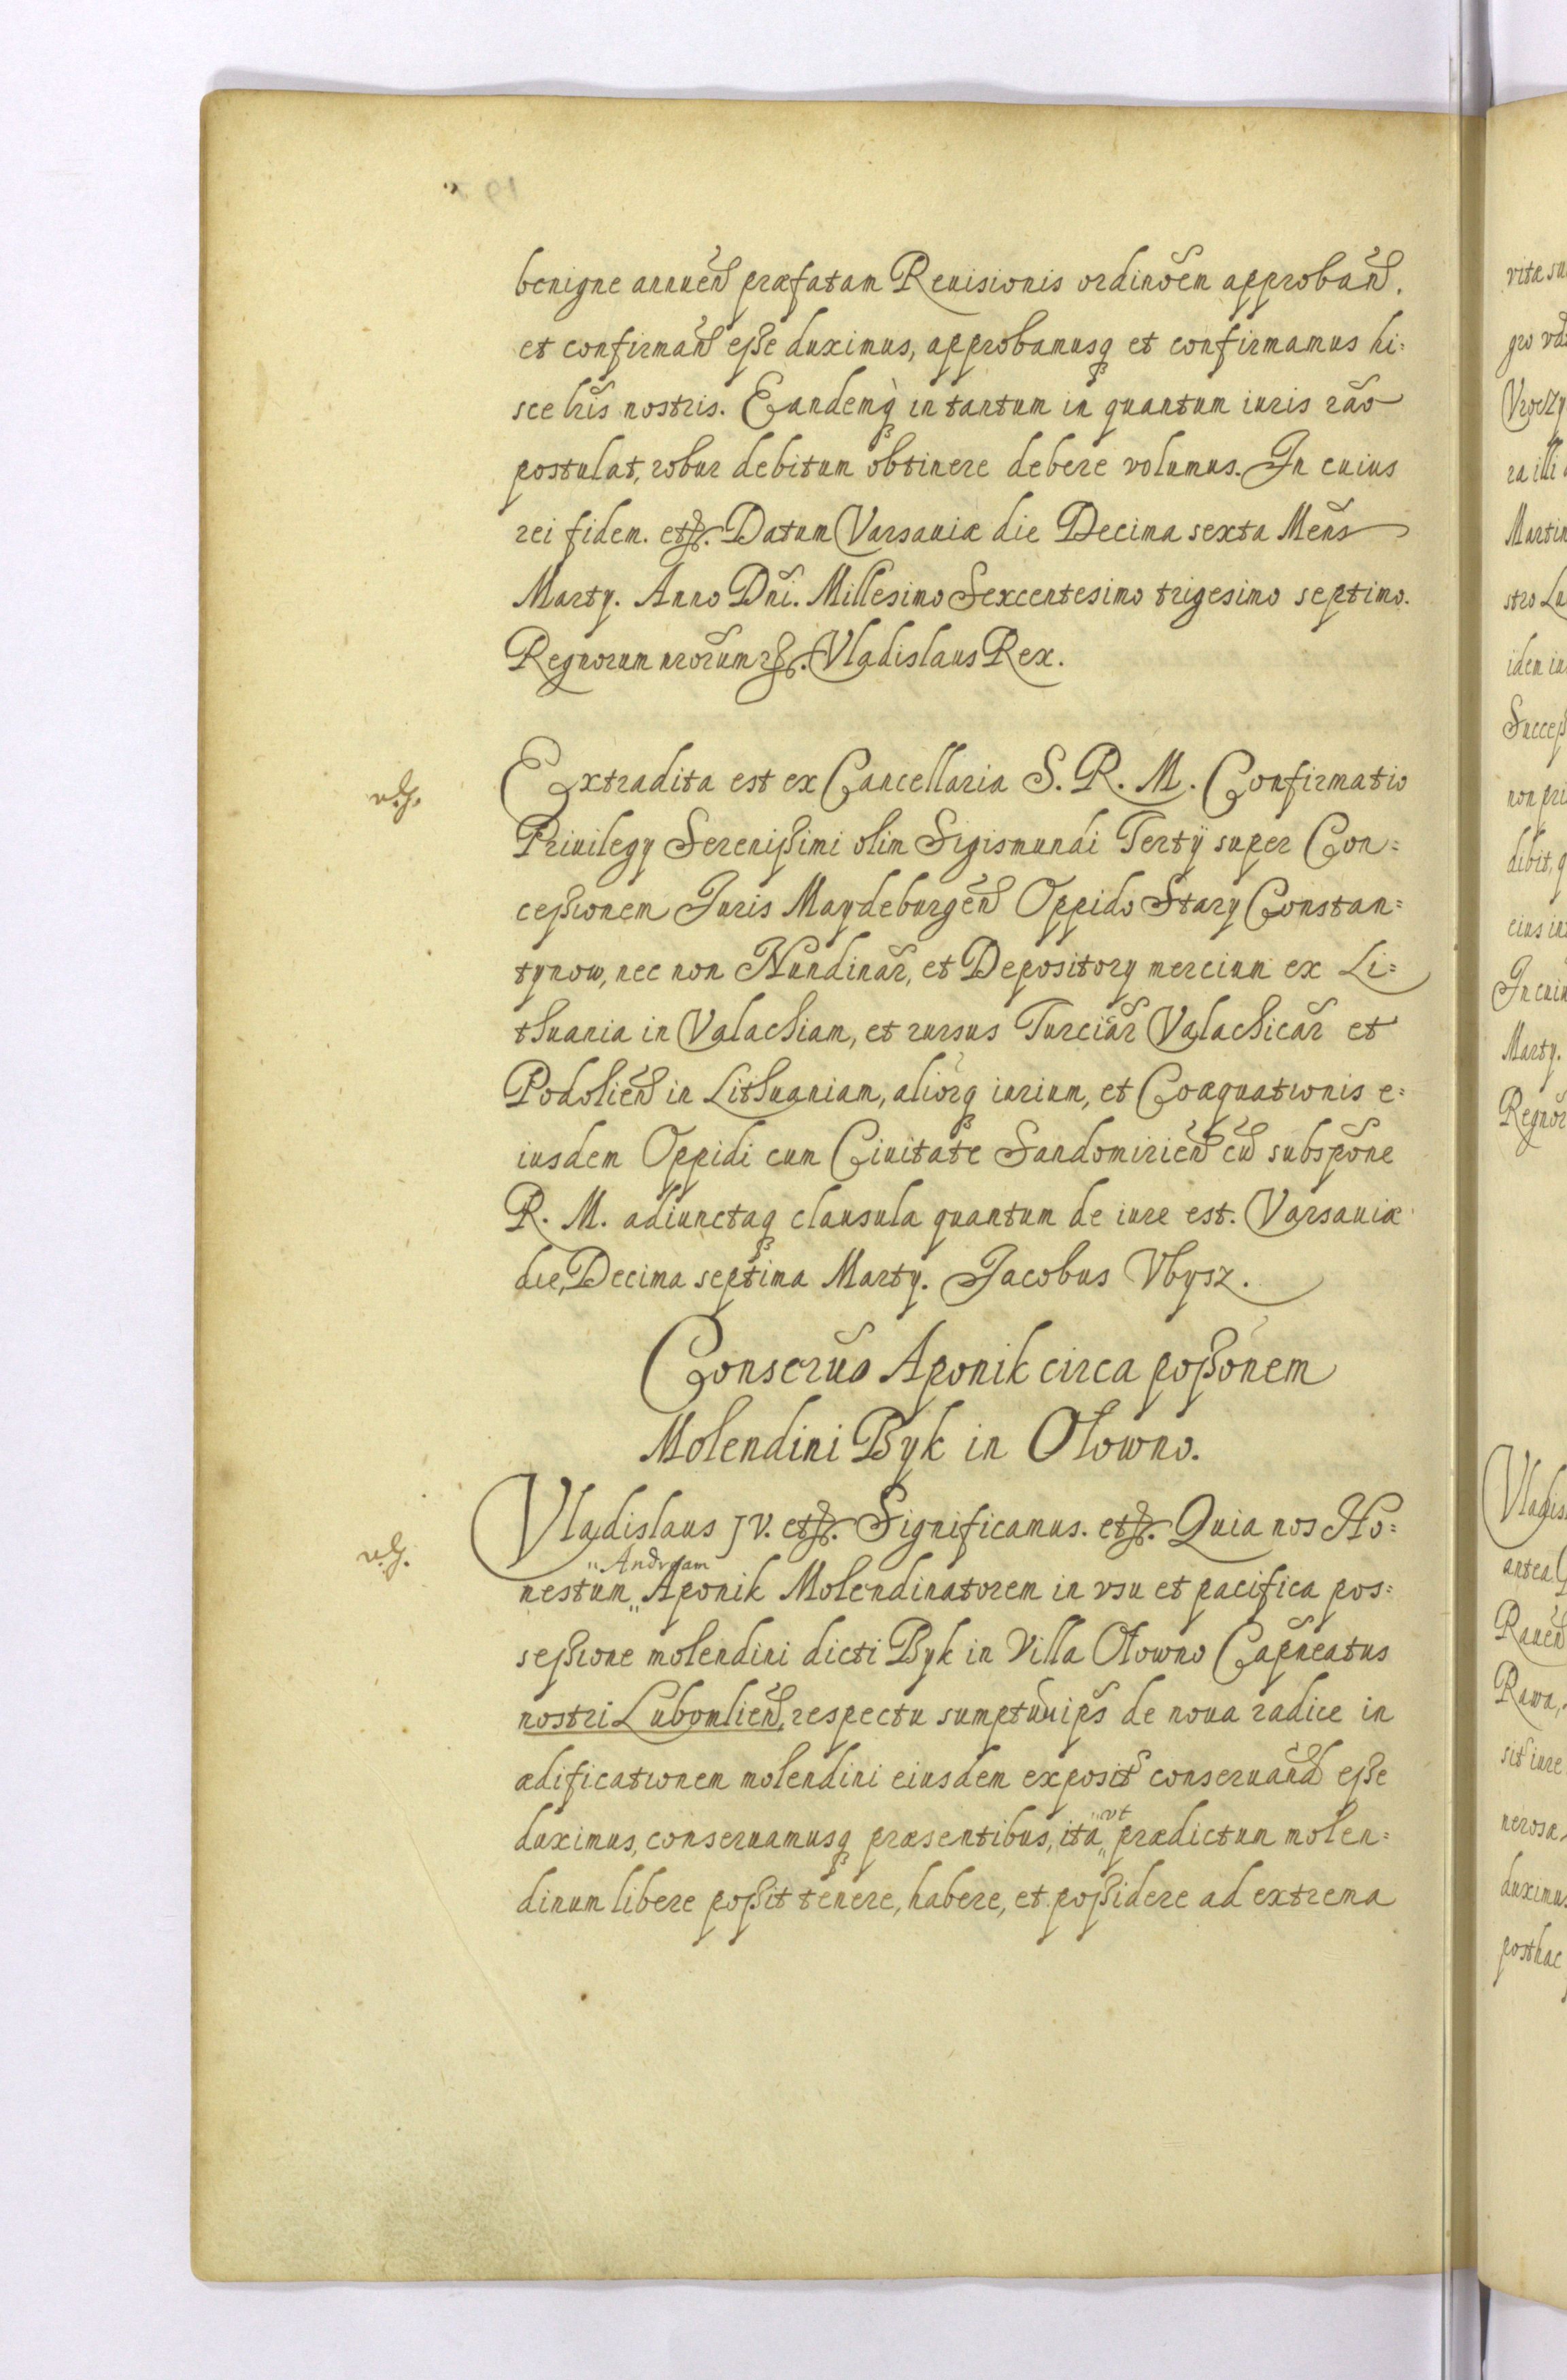 benigne annueñ præfatam Reuisionis ordinõem approbañ.
et confirmañ eße duximus, approbamusq et confirmamus hi=
sce lr̃is nostris. Eandemq̀ in tantum in quantum iuris rão
postulat, robur debitum obtinere debere volumus. In cuius
rei fidem. etc̃. Datum Varsauiæ die Decima sexta Mens̃
Marty. Anno Dñi. Millesimo Sexcentesimo trigesimo septimo.
Regnorum nrõrum etc̃. Vladislaus Rex.
Extradita est ex Cancellaria S. R. M. Confirmatio
Priuilegy Serenißimi olim Sigismundi Tertÿ super Con=
ceßionem Juris Maydeburgeñ Oppido Stary Constan=
tynow, nec non Nundinar̃, et Depository mercium ex Li=
thuania in Valachiam, et rursus Turciar̃ Valachicar̃ et
Podolieñ in Lithuaniam, aliorq̃ iurium, et Coæquationis e=
iusdem Oppidi cum Ciuitate Sandomirieñ cũ subspõne
R. M. adiunctaq clausula quantum de iure est. Varsauiæ
die, Decima septima Marty. Jacobus Vbysz.
Conseruõ Aponik circa poßõnem
Molendini Byk in Ołowno.
Vladislaus IV. etc̃. Significamus. etc̃. Quia nos Ho=
"Andream
nestum „ Aponik Molendinatorem in vsu et pacifica pos=
seßione molendini dicti Byk in Villa Ołowno Cap̃neatus
nostri Lubomlieñ, respectu sumptuũ ip̃s de noua radice in
ædificationem molendini eiusdem exposit̃ conseruañd eße
duximus, conseruamusq præsentibus, ita „ prædictum molen=
"vt
dinum libere poßit tenere, habere, et poßidere ad extrema